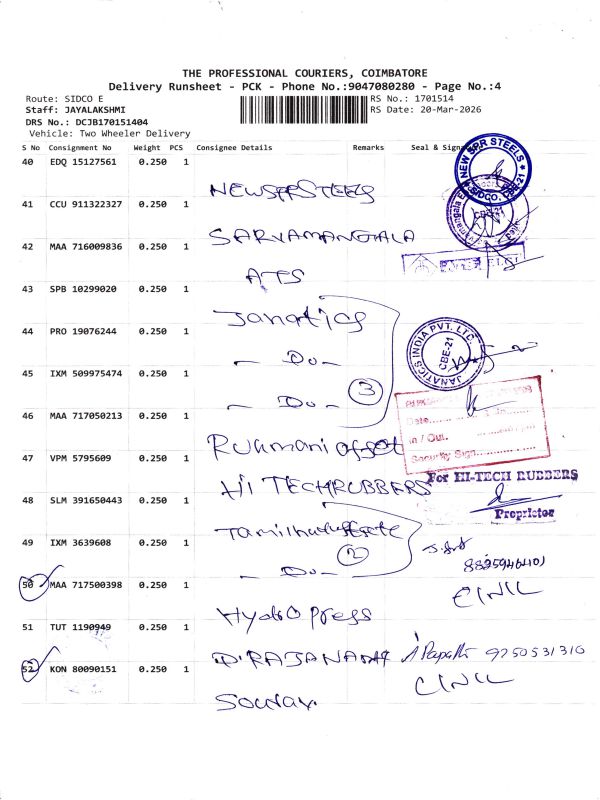 THE PROFESSIONAL COURIERS, COIMBATORE
Delivery Runsheet - PCK - Phone No.:9047080280 - Page No.:4
Route: SIDCO E
RS No.: 1701514
Staff: JAYALAKSHMI
RS Date: 20-Mar-2026
DRS No.: DCJB170151404
Vehicle: Two Wheeler Delivery
S No Consignment No Weight PCS Consignee Details Remarks Seal &
40 EDQ 15127561 0.250 1
NEW SPR STEELS
NEW SPR STEELS
SIDCO, CBE-21
41 CCU 911322327 0.250 1
SARVAMANGALA
CBE-21
42 MAA 716009836 0.250 1
ATS
43 SPB 10299020 0.250 1
Janatics
44 PRO 19076244 0.250 1
- Do -
JANATICS INDIA PVT. LTD.
CBE-21
45 IXM 509975474 0.250 1
- Do -
3
46 MAA 717050213 0.250 1
Rukmani offset
Date
In / Out.
Security Sign
47 VPM 5795609 0.250 1
HI TECH RUBBERS
For HI-TECH RUBBERS
Proprietor
48 SLM 391650443 0.250 1
49 IXM 3639608 0.250 1
2
- Do -
50 MAA 717500398 0.250 1
Hydro press
51 TUT 1190949 0.250 1
9250531310
52 KON 80090151 0.250 1
Sourav.